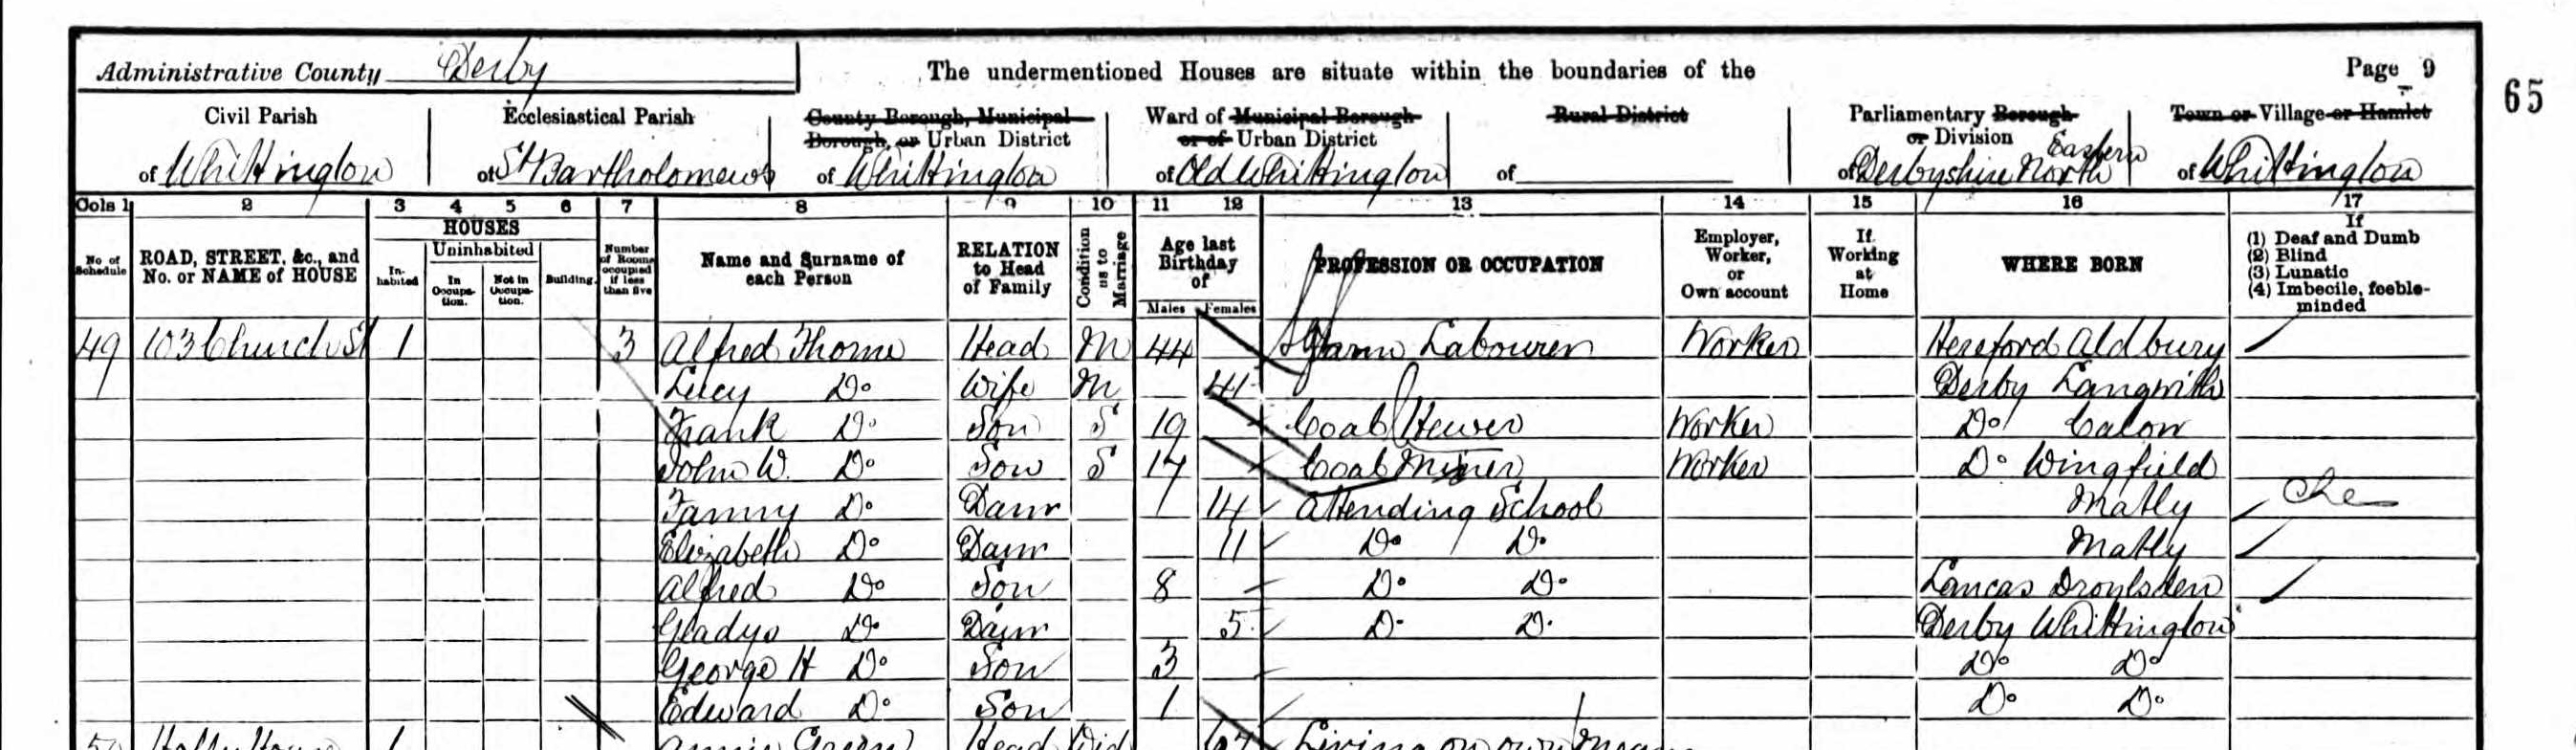 Administrative County Derby
The undermentioned Houses are situate within the boundaries of the
Page 9
65
Civil Parish
of Whittington
Ecclesiastical Parish
of St Bartholomews
County Borough, Municipal
Borough, or Urban District
of Whittington
Ward of Municipal Borough
or of Urban District
of Old Whittington
Rural District
of
Parliamentary Borough
or Division
of Derbyshire North Eastern
Town or Village or Hamlet
of Whittington
Cols 1 2 3 4 5 6 7 8 9 10 11 12 13 14 15 16 17
No of Schedule
ROAD, STREET, &c., and No. or NAME of HOUSE
HOUSES
Inhabited
Uninhabited
In Occupation.
Not in Occupation.
Building
Number of Rooms occupied if less than five
Name and Surname of each Person
RELATION to Head of Family
Condition as to Marriage
Age last Birthday of
Males Females
PROFESSION OR OCCUPATION
Employer, Worker, or Own account
If Working at Home
WHERE BORN
If
(1) Deaf and Dumb
(2) Blind
(3) Lunatic
(4) Imbecile, feeble-minded
49 103 Church St 1 3 Alfred Thorne Head M 44 Farm Labourer Worker Hereford Aldbury
Lucy Do Wife M 41 Derby Langwith
Frank Do Son S 19 Coal Hewer Worker Do Calow
John W. Do Son S 17 Coal Miner Worker Do Wingfield
Fanny Do Daur 14 Attending School Matly
Elizabeth Do Daur 11 Do Do Matly
Alfred Do Son 8 Do Do Lancas Droylsden
Gladys Do Daur 5 Do Do Derby Whittington
George H Do Son 3 Do Do
Edward Do Son 1 Do Do
50 Holly House 1 Annie Green Head Wid 67 Living on own Means